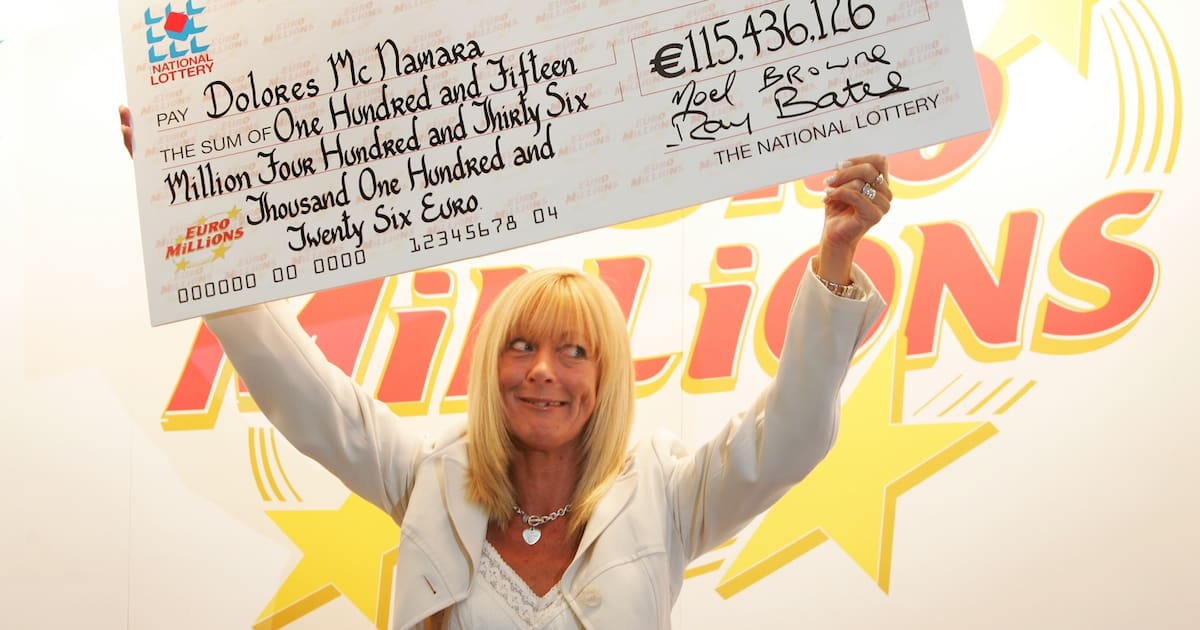 NATIONAL
LOTTERY
PAY Dolores Mc Namara
THE SUM OF One Hundred and Fifteen
Million Four Hundred and Thirty Six
Thousand One Hundred and
Twenty Six Euro
€115,436,126
Noel Browne
Ray Bates
THE NATIONAL LOTTERY
EURO
MILLIONS
000000 00 0000 12345678 04
MILLIONS